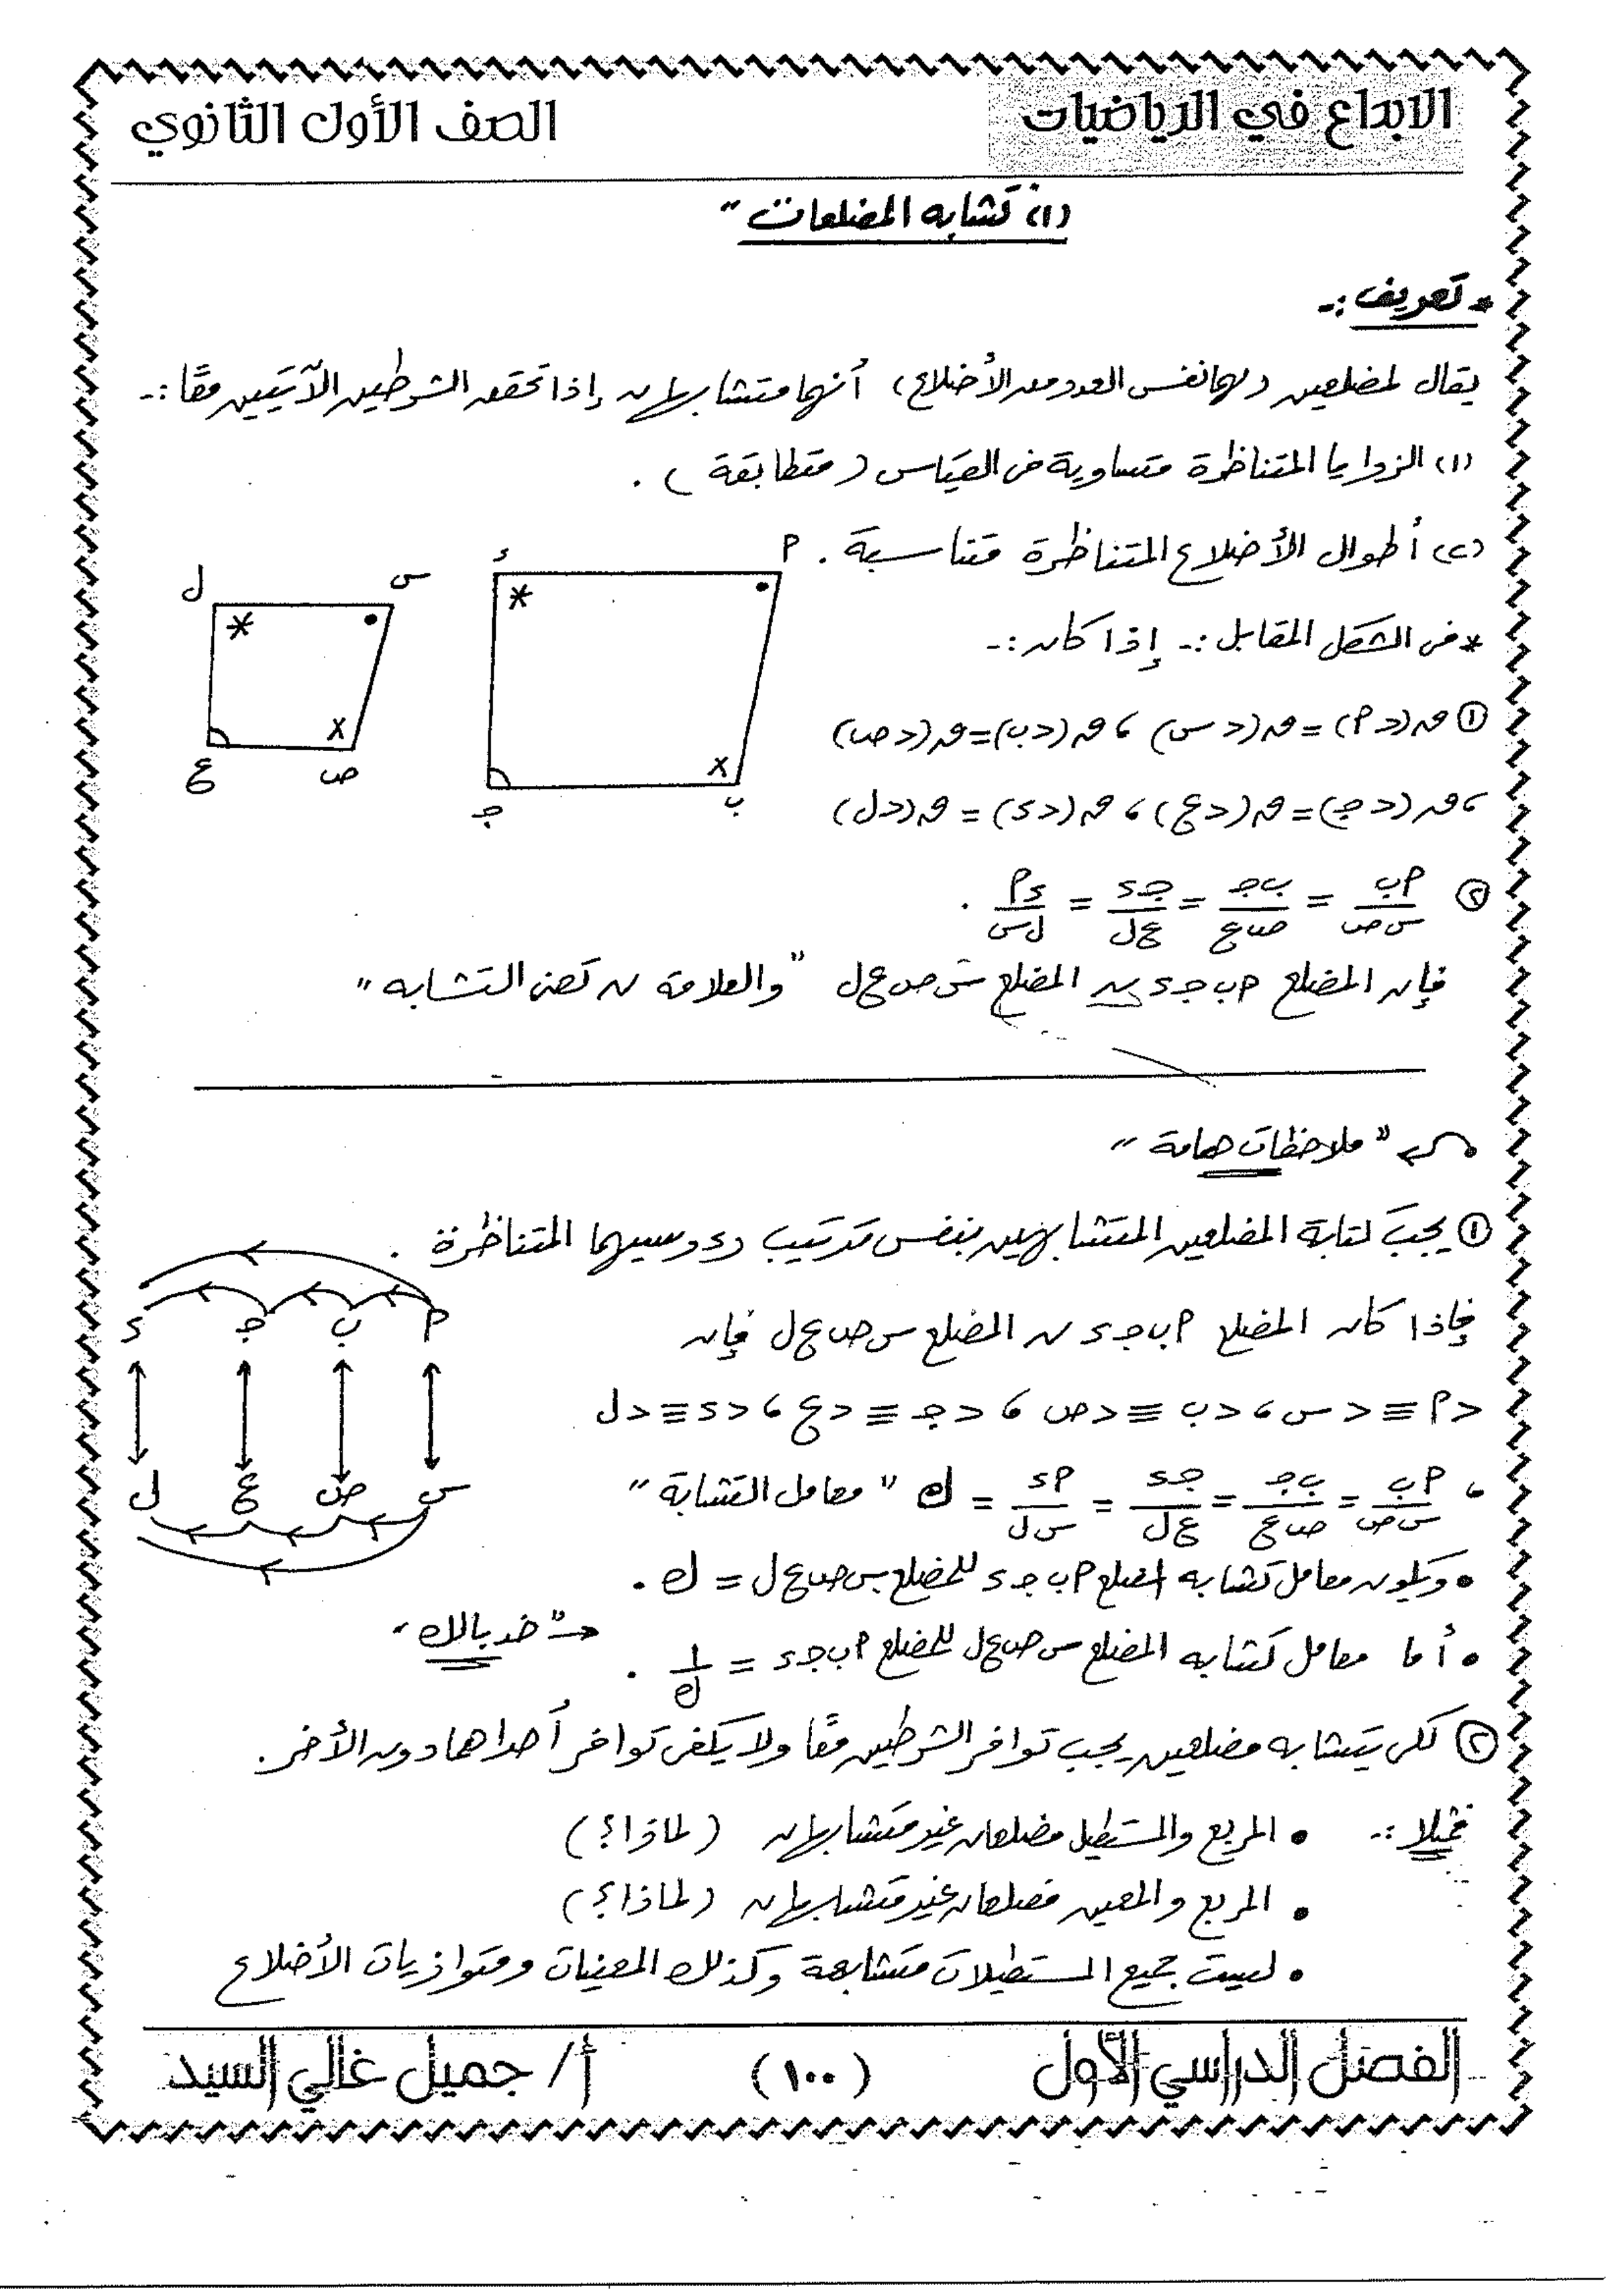 الابداع في الرياضيات
الصف الأول الثانوي
(١) " تشابه المضلعات "
* تعريف :-
يقال لمضلعين ( لهما نفس العدد من الأضلاع ) أنهما متشابهان إذا تحقق الشرطين الآتيين معًا :-
(١) الزوايا المتناظرة متساوية فى القياس ( متطابقة ) .
(٢) أطوال الأضلاع المتناظرة متناسبة .
* فى الشكل المقابل :- إذا كان :-
أ
ء
ب
ج
س
ل
ص
ع
① ق(>أ) = ق(>س) ، ق(>ب) = ق(>ص)
، ق(>ج) = ق(>ع) ، ق(>ء) = ق(>ل)
② أب/س ص = ب ج/ص ع = ج ء/ع ل = ء أ/ل س .
فإن المضلع أ ب ج ء ~ المضلع س ص ع ل " والعلامة ~ تعنى التشابه "
" ملاحظات هامة "
① يجب كتابة المضلعين المتشابهين بنفس ترتيب رءوسيهما المتناظرة .
فإذا كان المضلع أ ب ج ء ~ المضلع س ص ع ل فإن
>أ ≡ >س ، >ب ≡ >ص ، >ج ≡ >ع ، >ء ≡ >ل
، أب/س ص = ب ج/ص ع = ج ء/ع ل = أ ء/س ل = ك " معامل التشابة "
أ ب ج ء
س ص ع ل
• ويكون معامل تشابه المضلع أ ب ج ء للمضلع س ص ع ل = ك .
• أما معامل تشابه المضلع س ص ع ل للمضلع أ ب ج ء = ١/ك .
→ " خد بالك "
② لكى يتشابه مضلعين يجب توافر الشرطين معًا ولا يكفى توافر أحداهما دون الأخر .
فمثلا :- • المربع والمستطيل مضلعان غير متشابهان ( لماذا ؟ )
• المربع والمعين مضلعان غير متشابهان ( لماذا ؟ )
• ليست جميع المستطيلات متشابهة وكذلك المعينات ومتوازيات الأضلاع
الفصل الدراسي الأول
( ١٠٠ )
أ / جميل غالي السيد